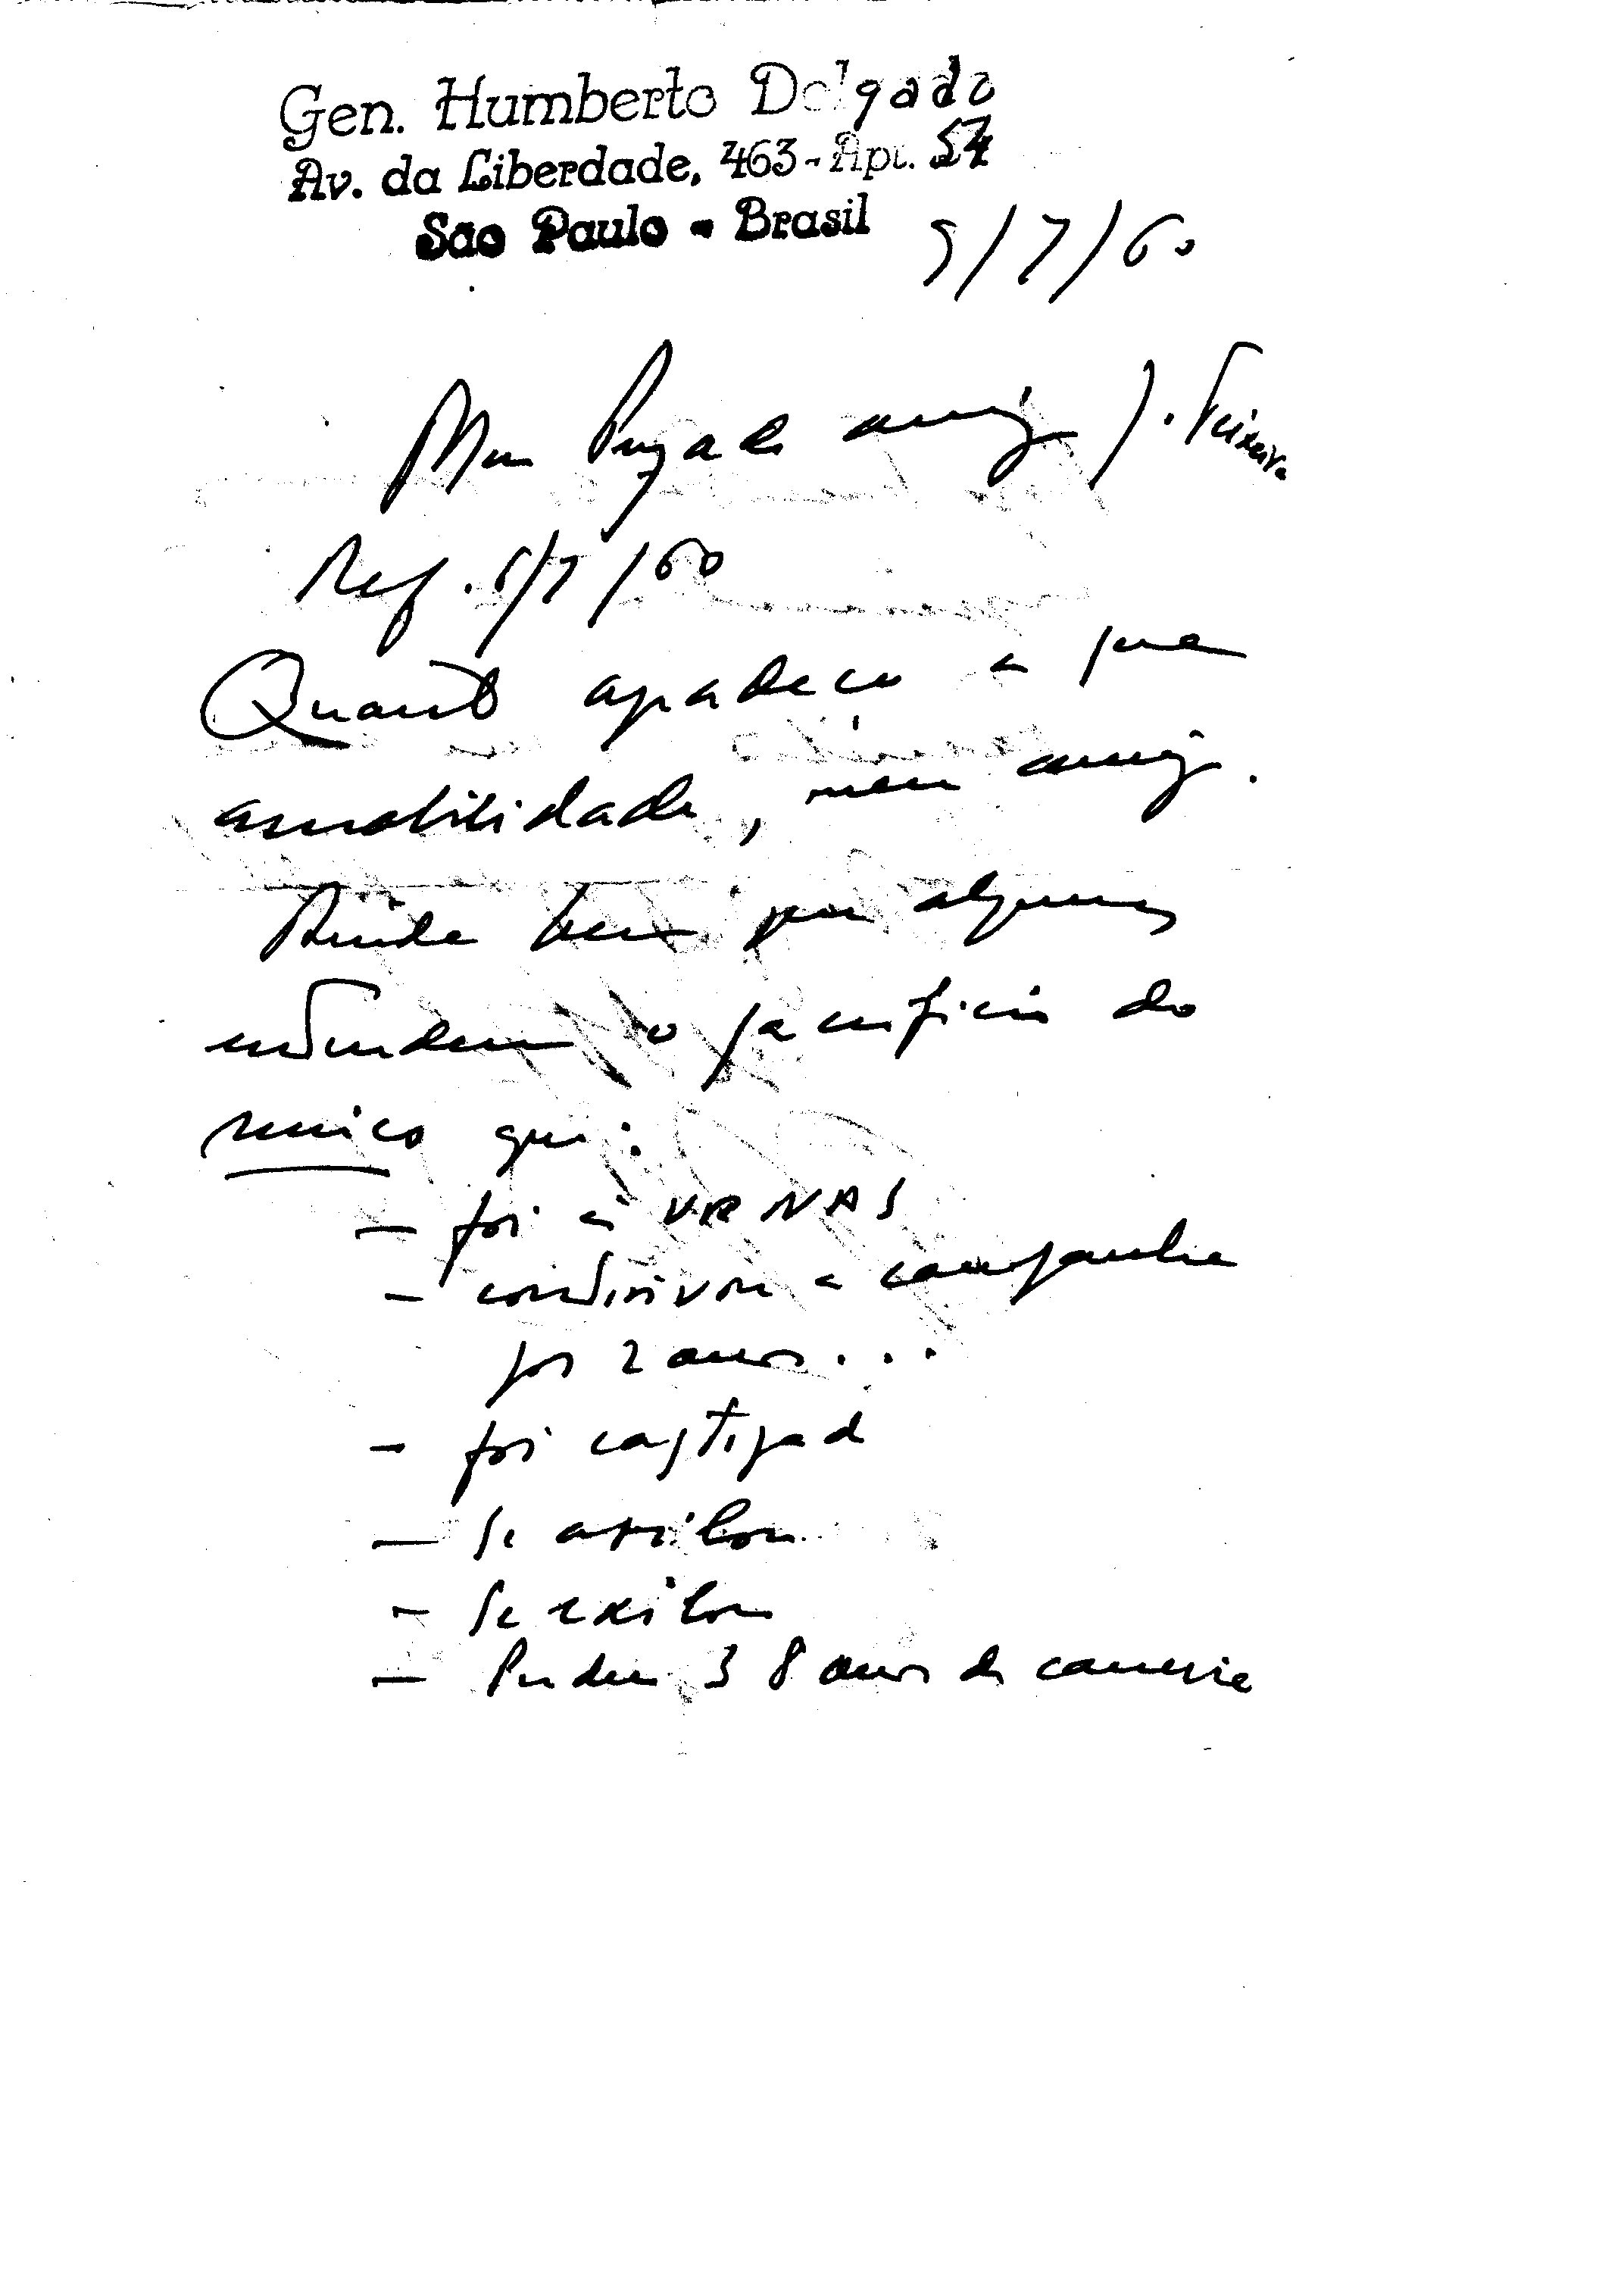 Gen. Humberto Delgado
Av. da Liberdade, 463 - Apt. 54
São Paulo - Brasil
5/7/60
Meu Prezado amigo J. Teixeira
Ref. 5/7/60
Quanto agradeço a sua
amabilidade, meu amigo.
Ainda bem que alguns
entendem o sacrificio do
unico que:
- foi às URNAS
- continuou a campanha
por 2 anos...
- foi castigado
- se asilou
- se exilou
- Perdeu 38 anos de carreira